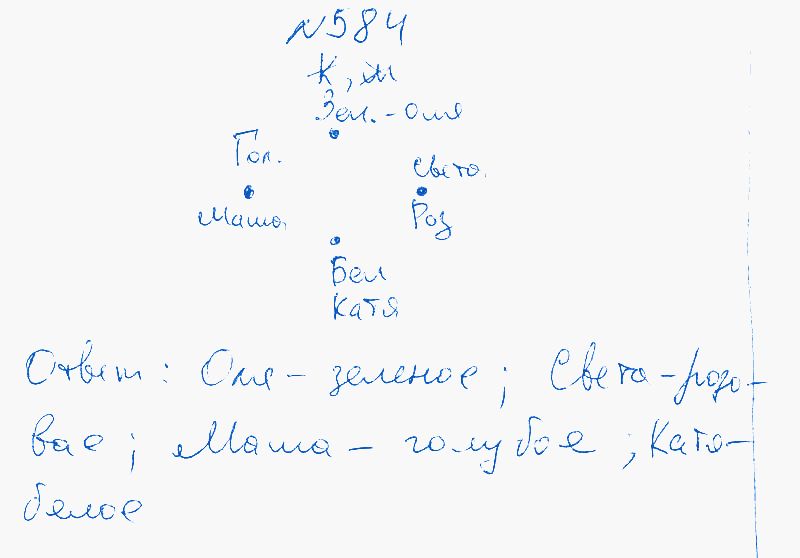 №584
К, м
Зел. - Оля
Гол.
Света.
Маша
Роз
Бел
Катя
Ответ: Оля - зеленое; Света - розо-
вае; Маша - голубое; Катя -
белое